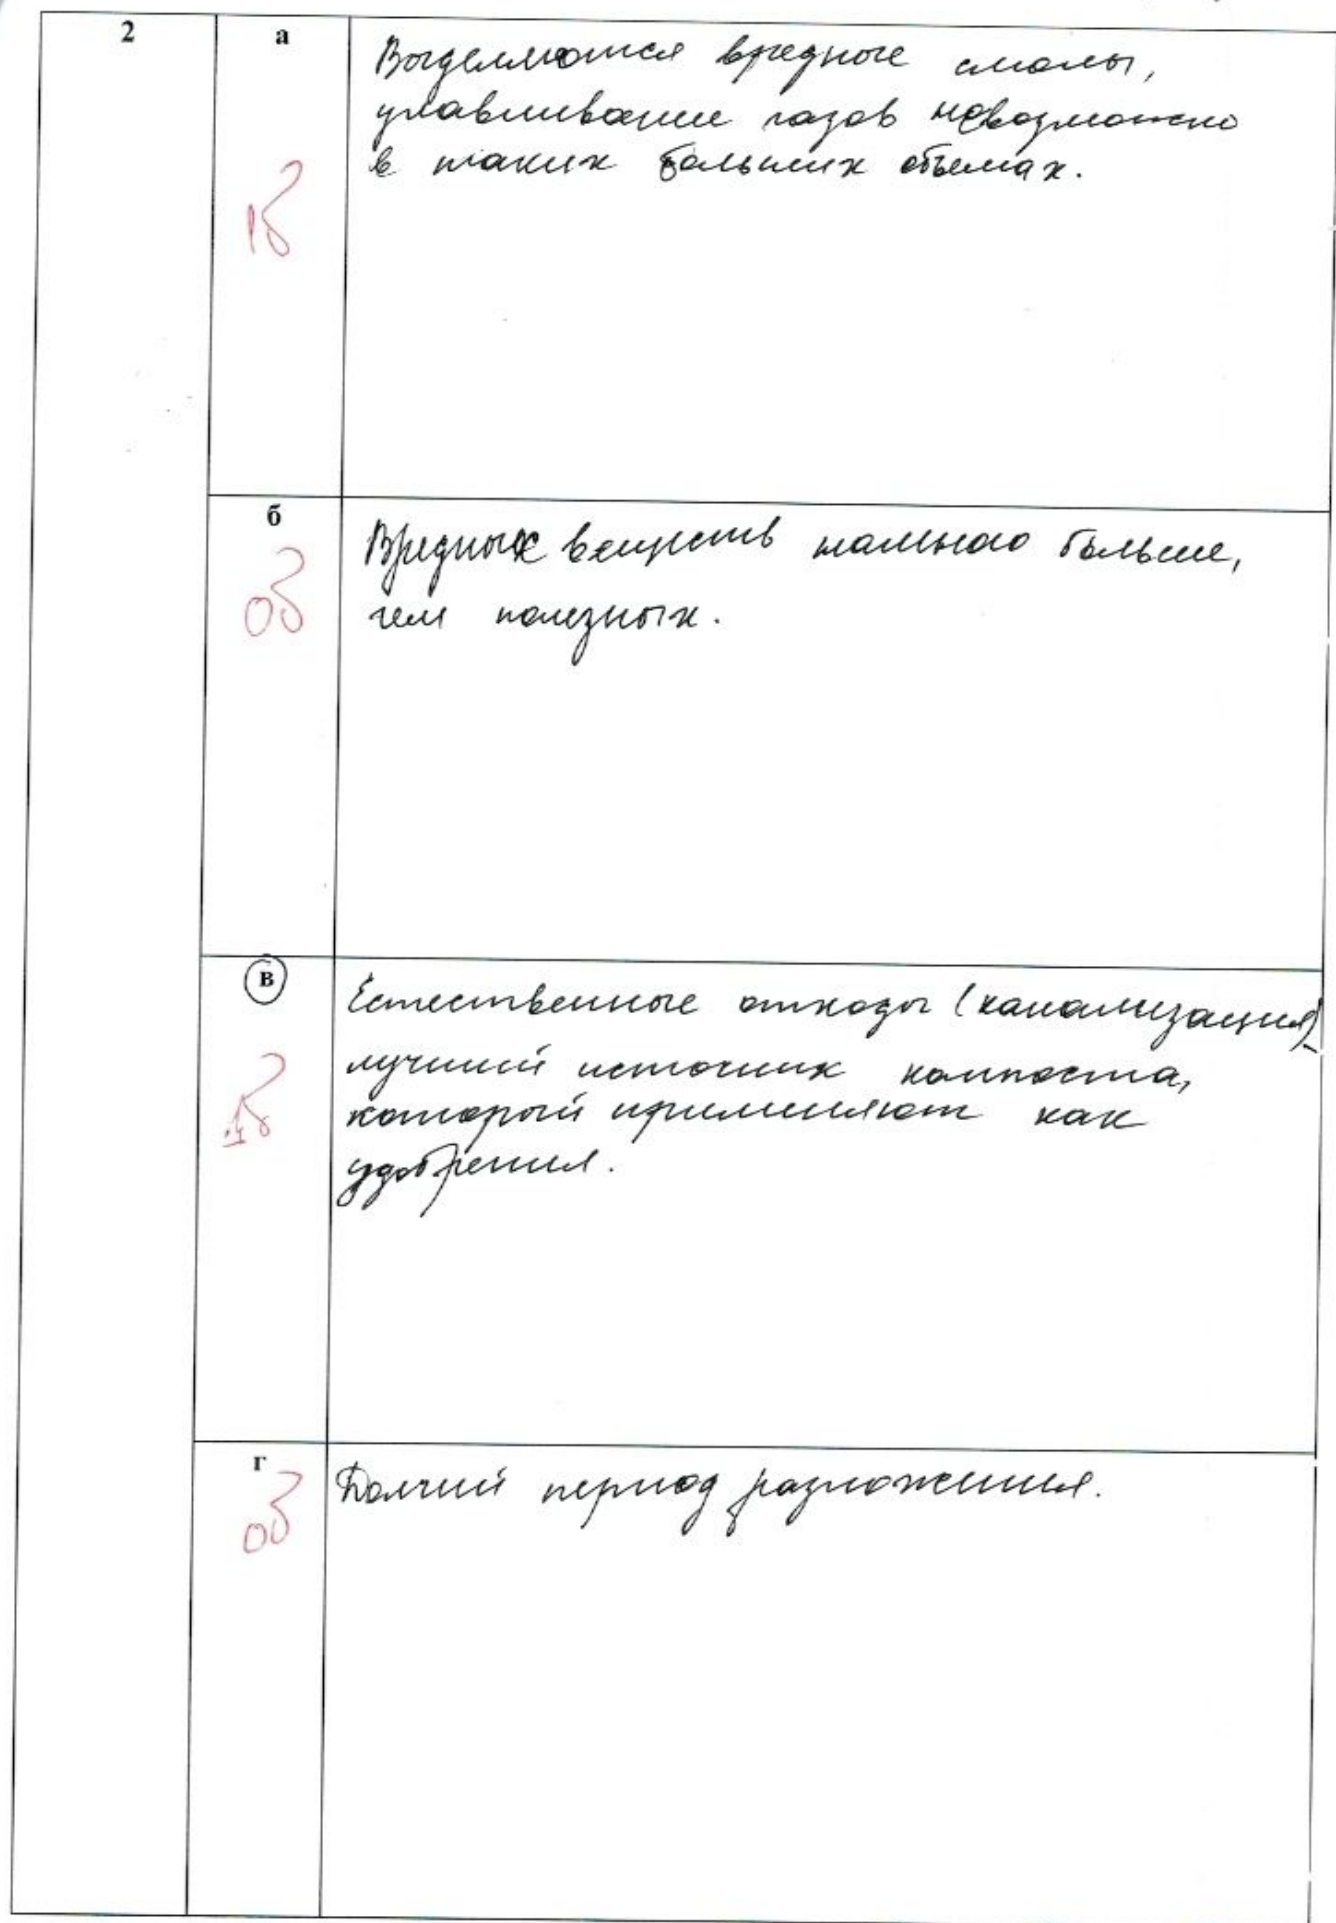 2
а
Выделяются вредные смолы,
улавливание газов невозможно
в таких больших объемах.
1б
б
Вредных веществ намного больше,
чем полезных.
0б
в
Естественные отходы (канализация)-
лучший источник компоста,
который применяют как
удобрения.
1б
г
Долгий период разложения.
0б